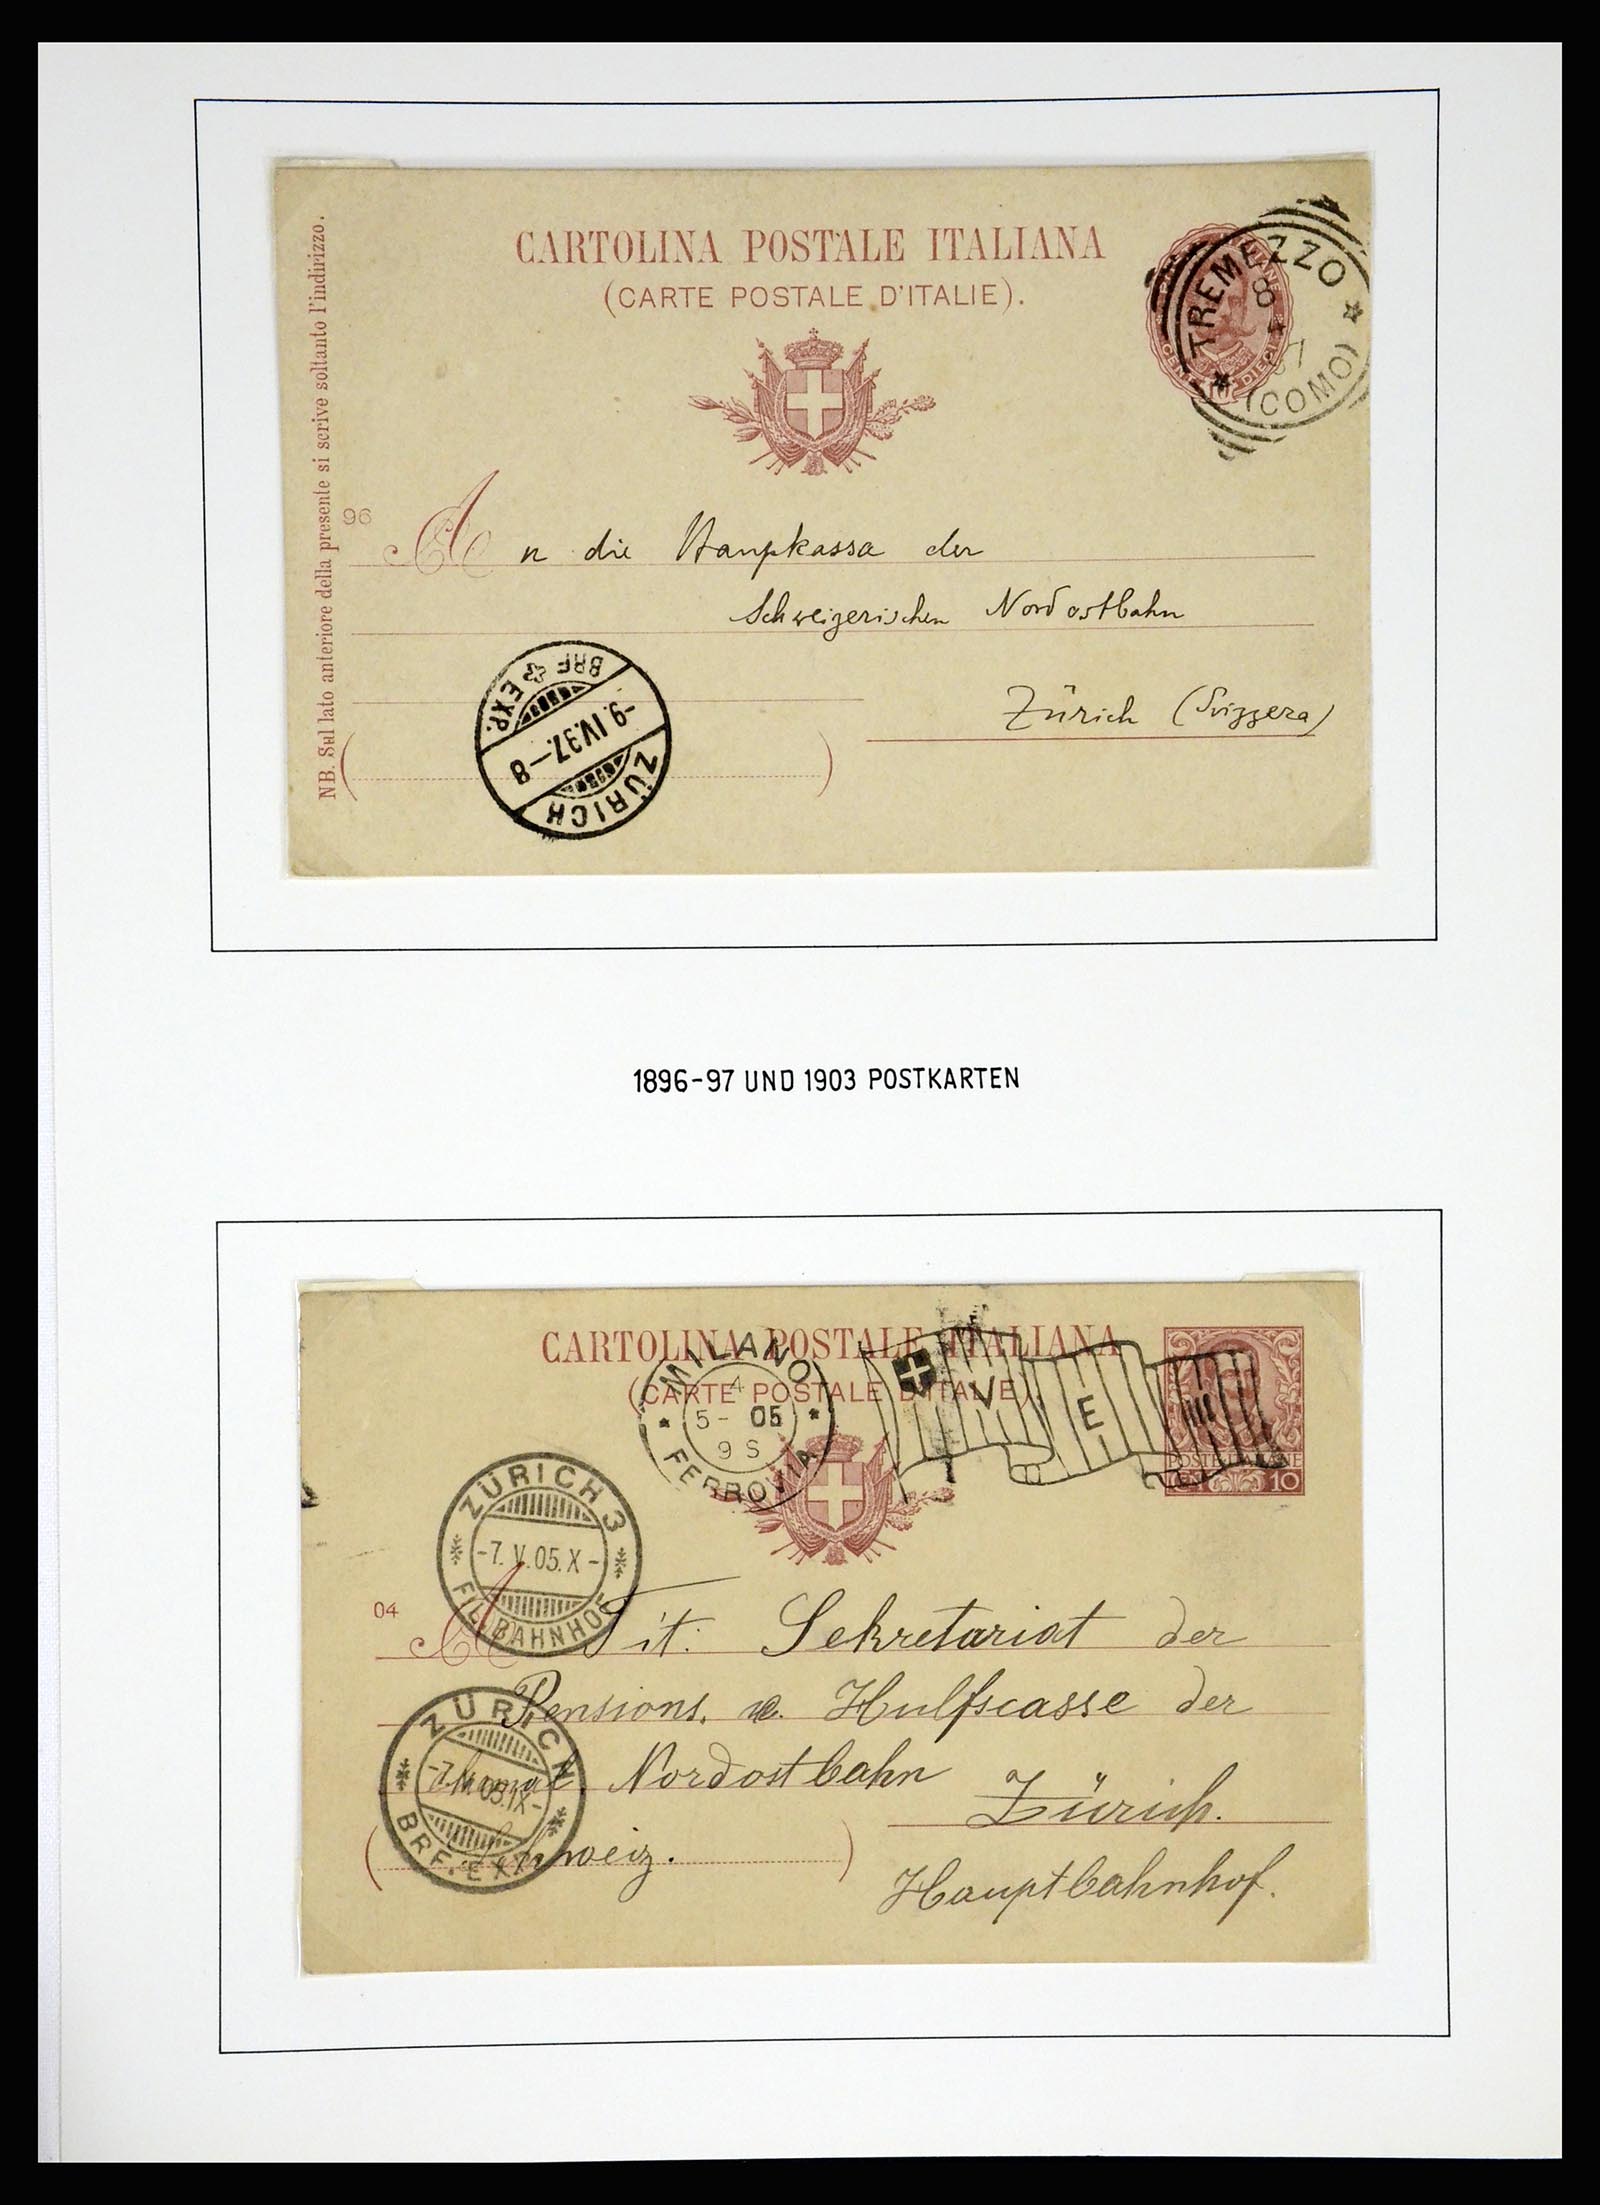 CARTOLINA POSTALE ITALIANA
(CARTE POSTALE D'ITALIE).
NB. Sul lato anteriore della presente si scrive soltanto l'indirizzo.
TREMEZZO
8 4 97
(COMO)
CENT DIECI
96
An die Haupkassa der
Schweizerischen Nordostbahn
Zürich (Svizzera)
BRF EXP.
-9.IV.97.-8
ZÜRICH
1896-97 UND 1903 POSTKARTEN
CARTOLINA POSTALE ITALIANA
(CARTE POSTALE D'ITALIE).
MILANO
4
5- 05
9 S
FERROVIA
V E III
POSTE ITALIANE
CENT 10
ZÜRICH 3
-7.V.05.X-
FIL. BAHNHOF
04
A Tit: Sekretariat der
Pensions. u. Hulfscasse der
Nordostbahn
Zürich.
Schweiz.
Hauptbahnhof.
ZÜRICH
-7.V.05.IX-
BRF. EXP.